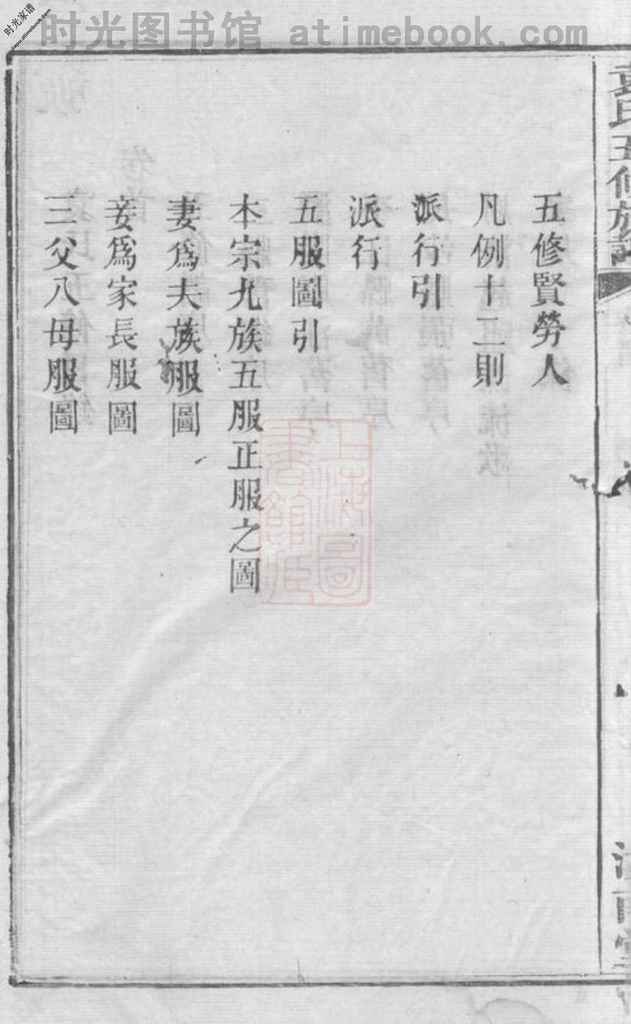 时光家谱
时光图书馆 atimebook.com
五修賢勞人
凡例十二則
派行引
派行
五服圖引
本宗九族五服正服之圖
妻爲夫族服圖
妾爲家長服圖
三父八母服圖
袁氏五修族譜
上海圖
書館藏